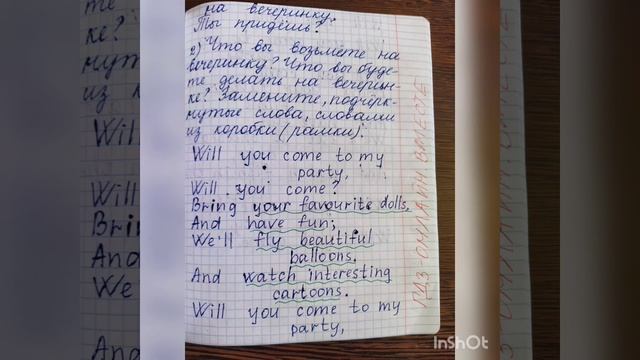 на вечеринку.
Ты придёшь?
2) Что вы возьмёте на
вечеринку? Что вы буде-
те делать на вечерин-
ке? Замените, подчерк-
нутые слова, словами
из коробки (рамки).
Will you come to my
party,
Will you come?
Bring your favourite dolls.
And have fun;
We'll fly beautiful
balloons.
And watch interesting
cartoons.
Will you come to my
party,
ГДЗ ОНЛАЙН ВМЕСТЕ
InShOt